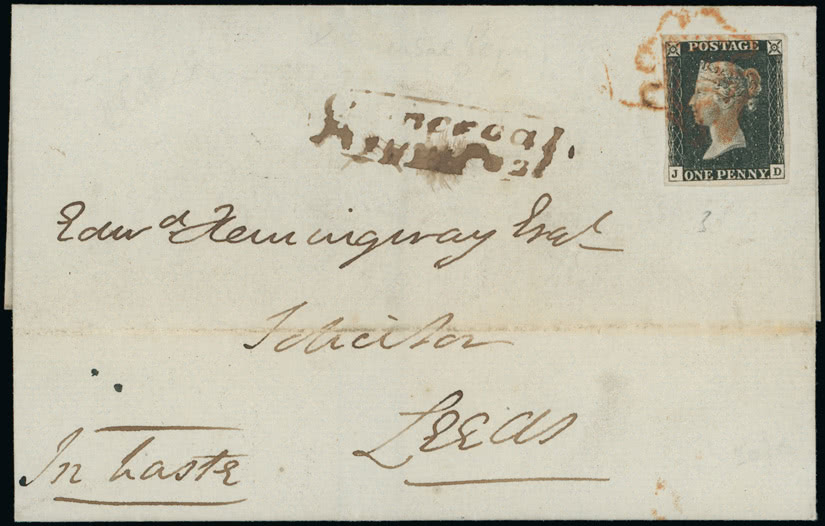 POSTAGE
J D
ONE PENNY
3
Edwd Hemingway Esqr
Solicitor
Leeds
In haste